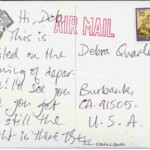 Hi, Deb
AIR MAIL
This is
ited on the
ning of depar-
I'll see you
you get
still the
ht is there
Debra Quarles
Burbank,
CA. 91505.
U. S. A.